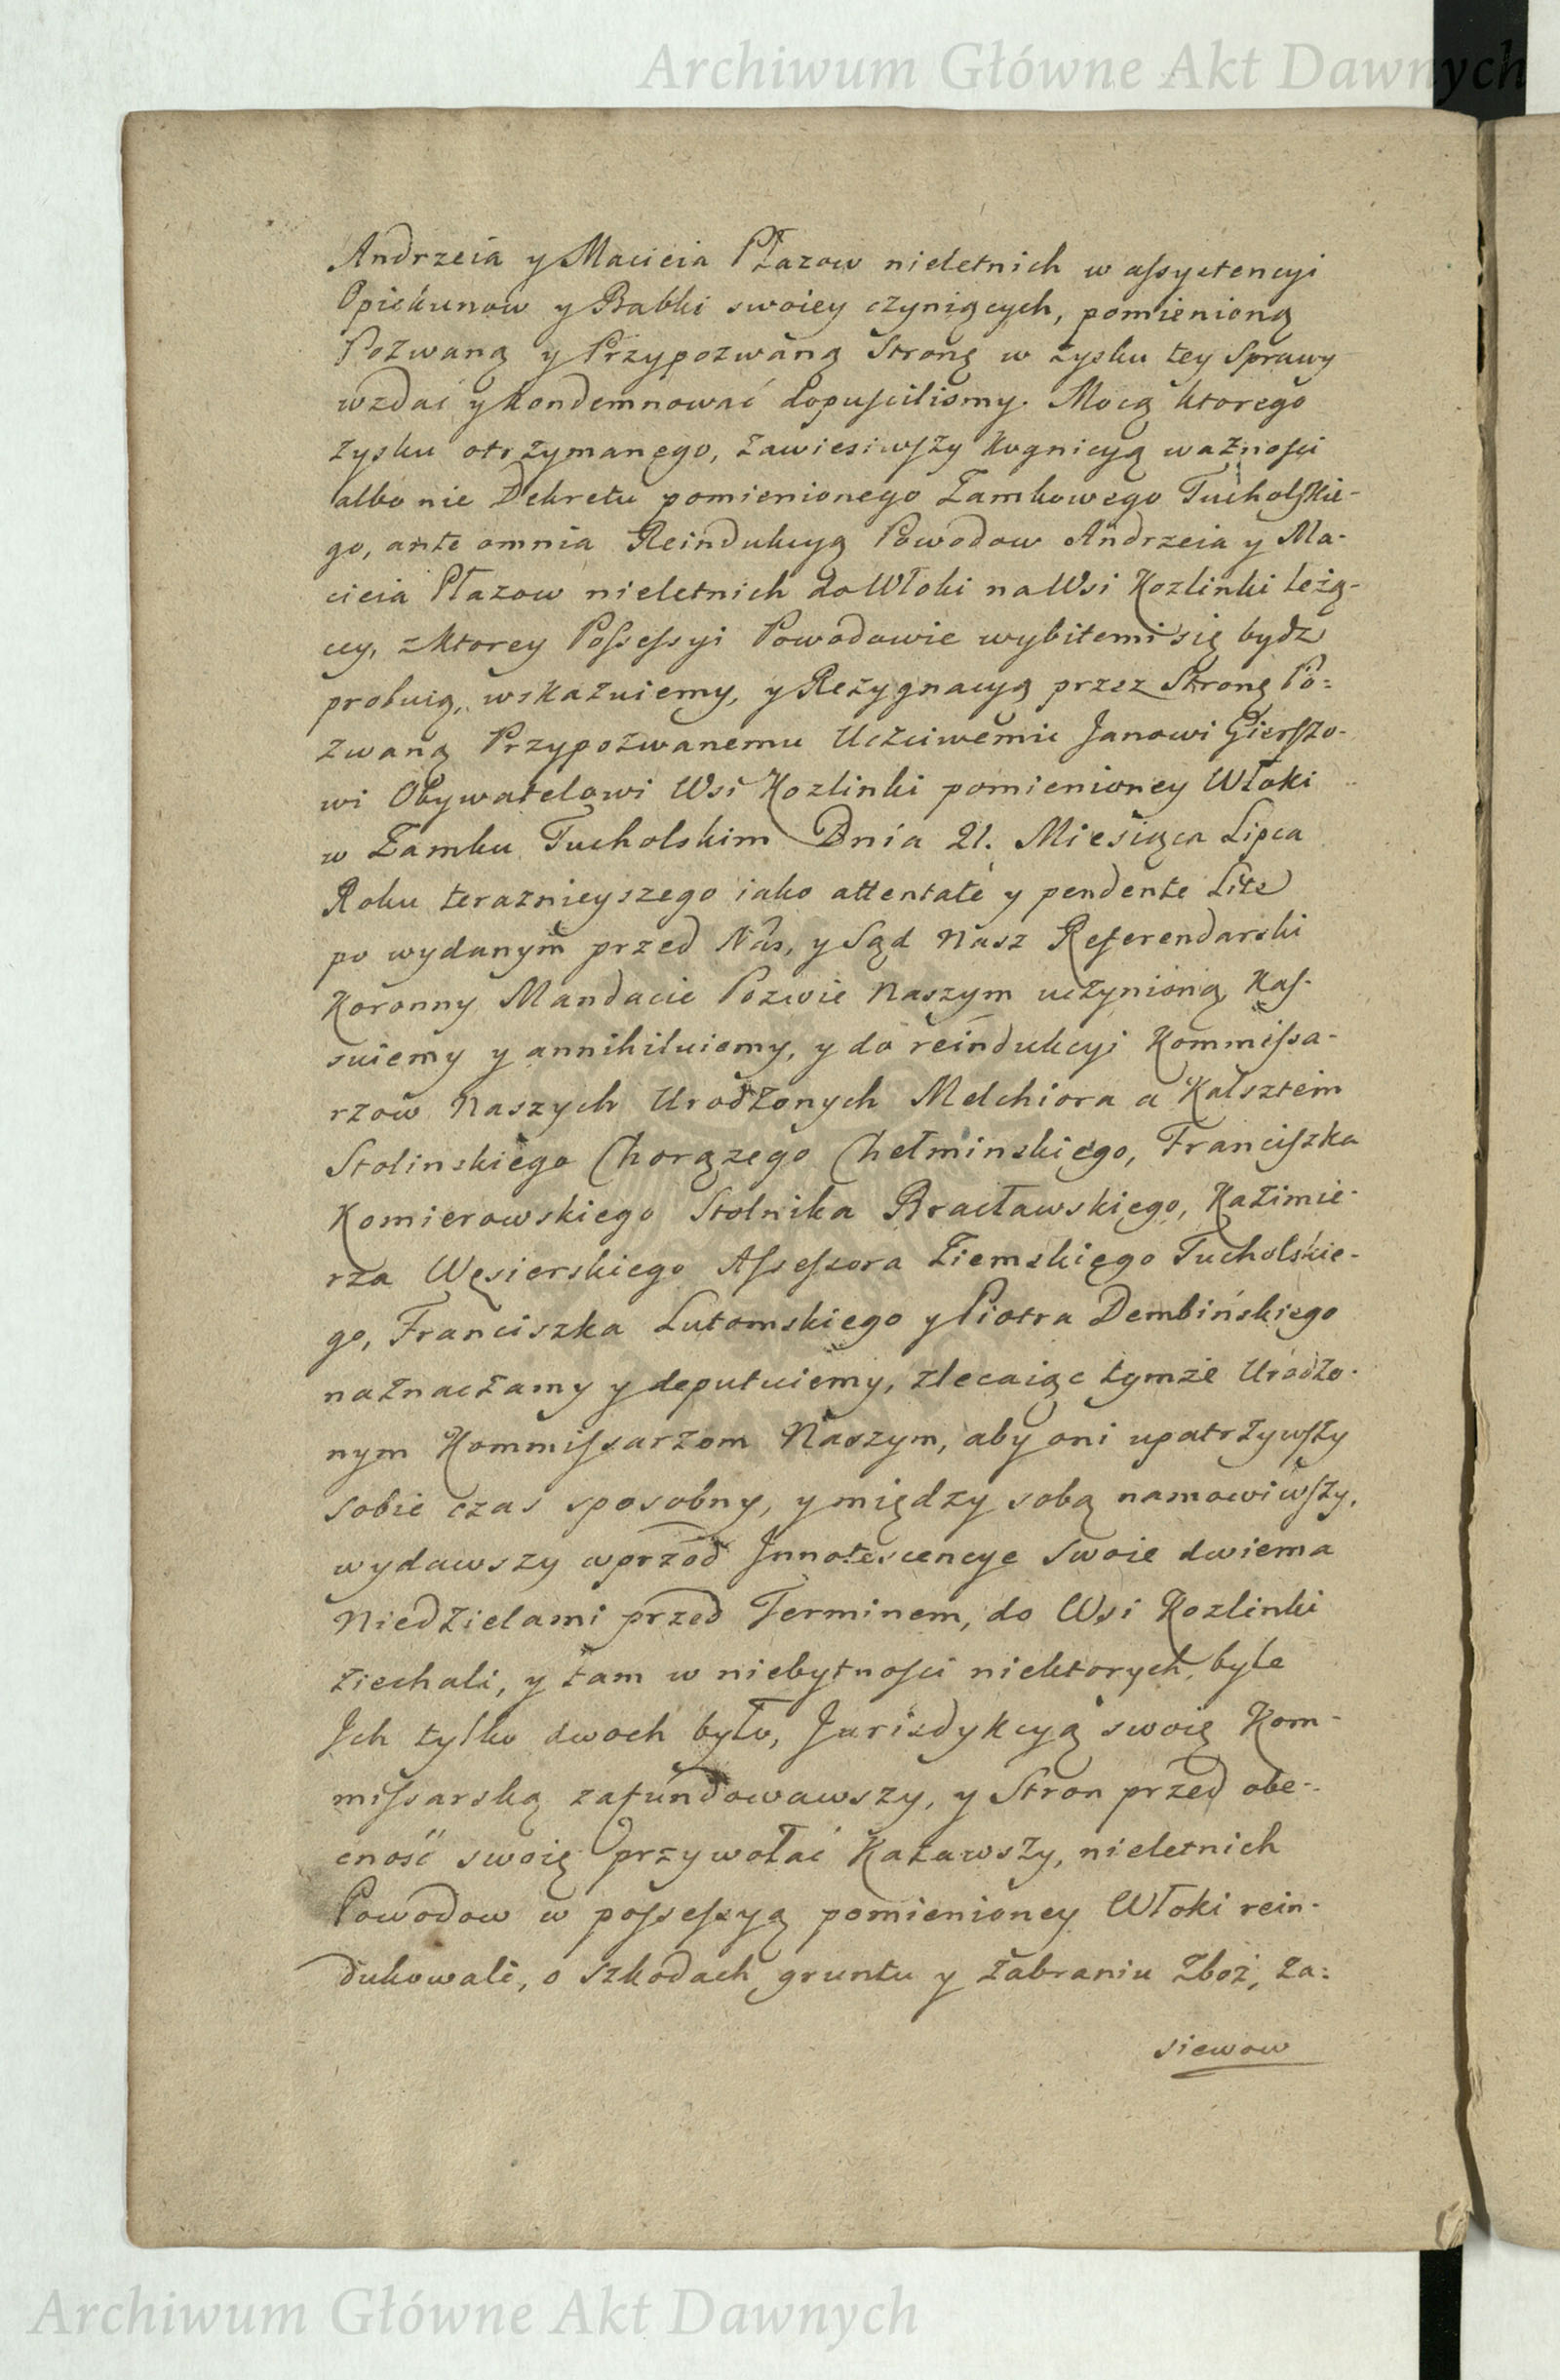 Archiwum Główne Akt Dawnych
Andrzeia y Macieia Płazow nieletnich w assystencyi
Opiekunow y Babki swoiey czyniących, pomienioną
Pozwaną y Przypozwaną Stronę w zysku tey Sprawy
wzdać y kondemnować dopuscilismy. Mocą ktorego
zysku otrzymanego, zawiesiwszy kognicyą ważnosci
albo nie Dekretu pomienionego Zamkowego Tucholskie-
go, ante omnia Reindukcyą Powodow Andrzeia y Ma-
cieia Płazow nieletnich do Włoki na Wsi Kozlinki leżą-
cey, z ktorey Possessyi Powodowie wybitemi się bydz
probuią, wskazuiemy, y Rezygnacyą przez Stronę Po=
zwaną Przypozwanemu Uczciwemu Janowi Gierszo-
wi Obywatelowi Wsi Kozlinki pomienioney Włoki
w Zamku Tucholskim Dnia 21. Miesiąca Lipca
Roku teraznieyszego iako attentatè y pendente Lite
po wydanym przed Nas, y Sąd Nasz Referendarski
Koronny Mandacie Pozwie Naszym uczynioną, Kas-
suiemy y annihiluiemy, y do reindukcyi Kommissa-
rzow Naszych Urodzonych Melchiora a Kalsztein
Stolinskiego Chorązego Chełminskiego, Franciszka
Komierowskiego Stolnika Bracławskiego, Kazimie-
rza Węsierskiego Assessora Ziemskiego Tucholskie-
go, Franciszka Lutomskiego y Piotra Dembińskiego
naznaczamy y deputuiemy, zlecaiąc tymże Urodzo-
nym Kommissarzom Naszym, aby oni upatrzywszy
sobie czas sposobny, y między sobą namowiwszy,
wydawszy wprzod Innotescencye swoie dwiema
Niedzielami przed Terminem, do Wsi Kozlinki
ziechali, y tam w niebytnosci niektorych, byle
Ich tylko dwoch było, Jurisdykcyą swoię Kom-
missarską zafundowawszy, y Stron przed obe-
cność swoię przywołać kazawszy, nieletnich
Powodow w possessyą pomienioney Włoki rein-
dukowali, o szkodach gruntu y zabraniu Zboż, za=
siewow
Archiwum Główne Akt Dawnych